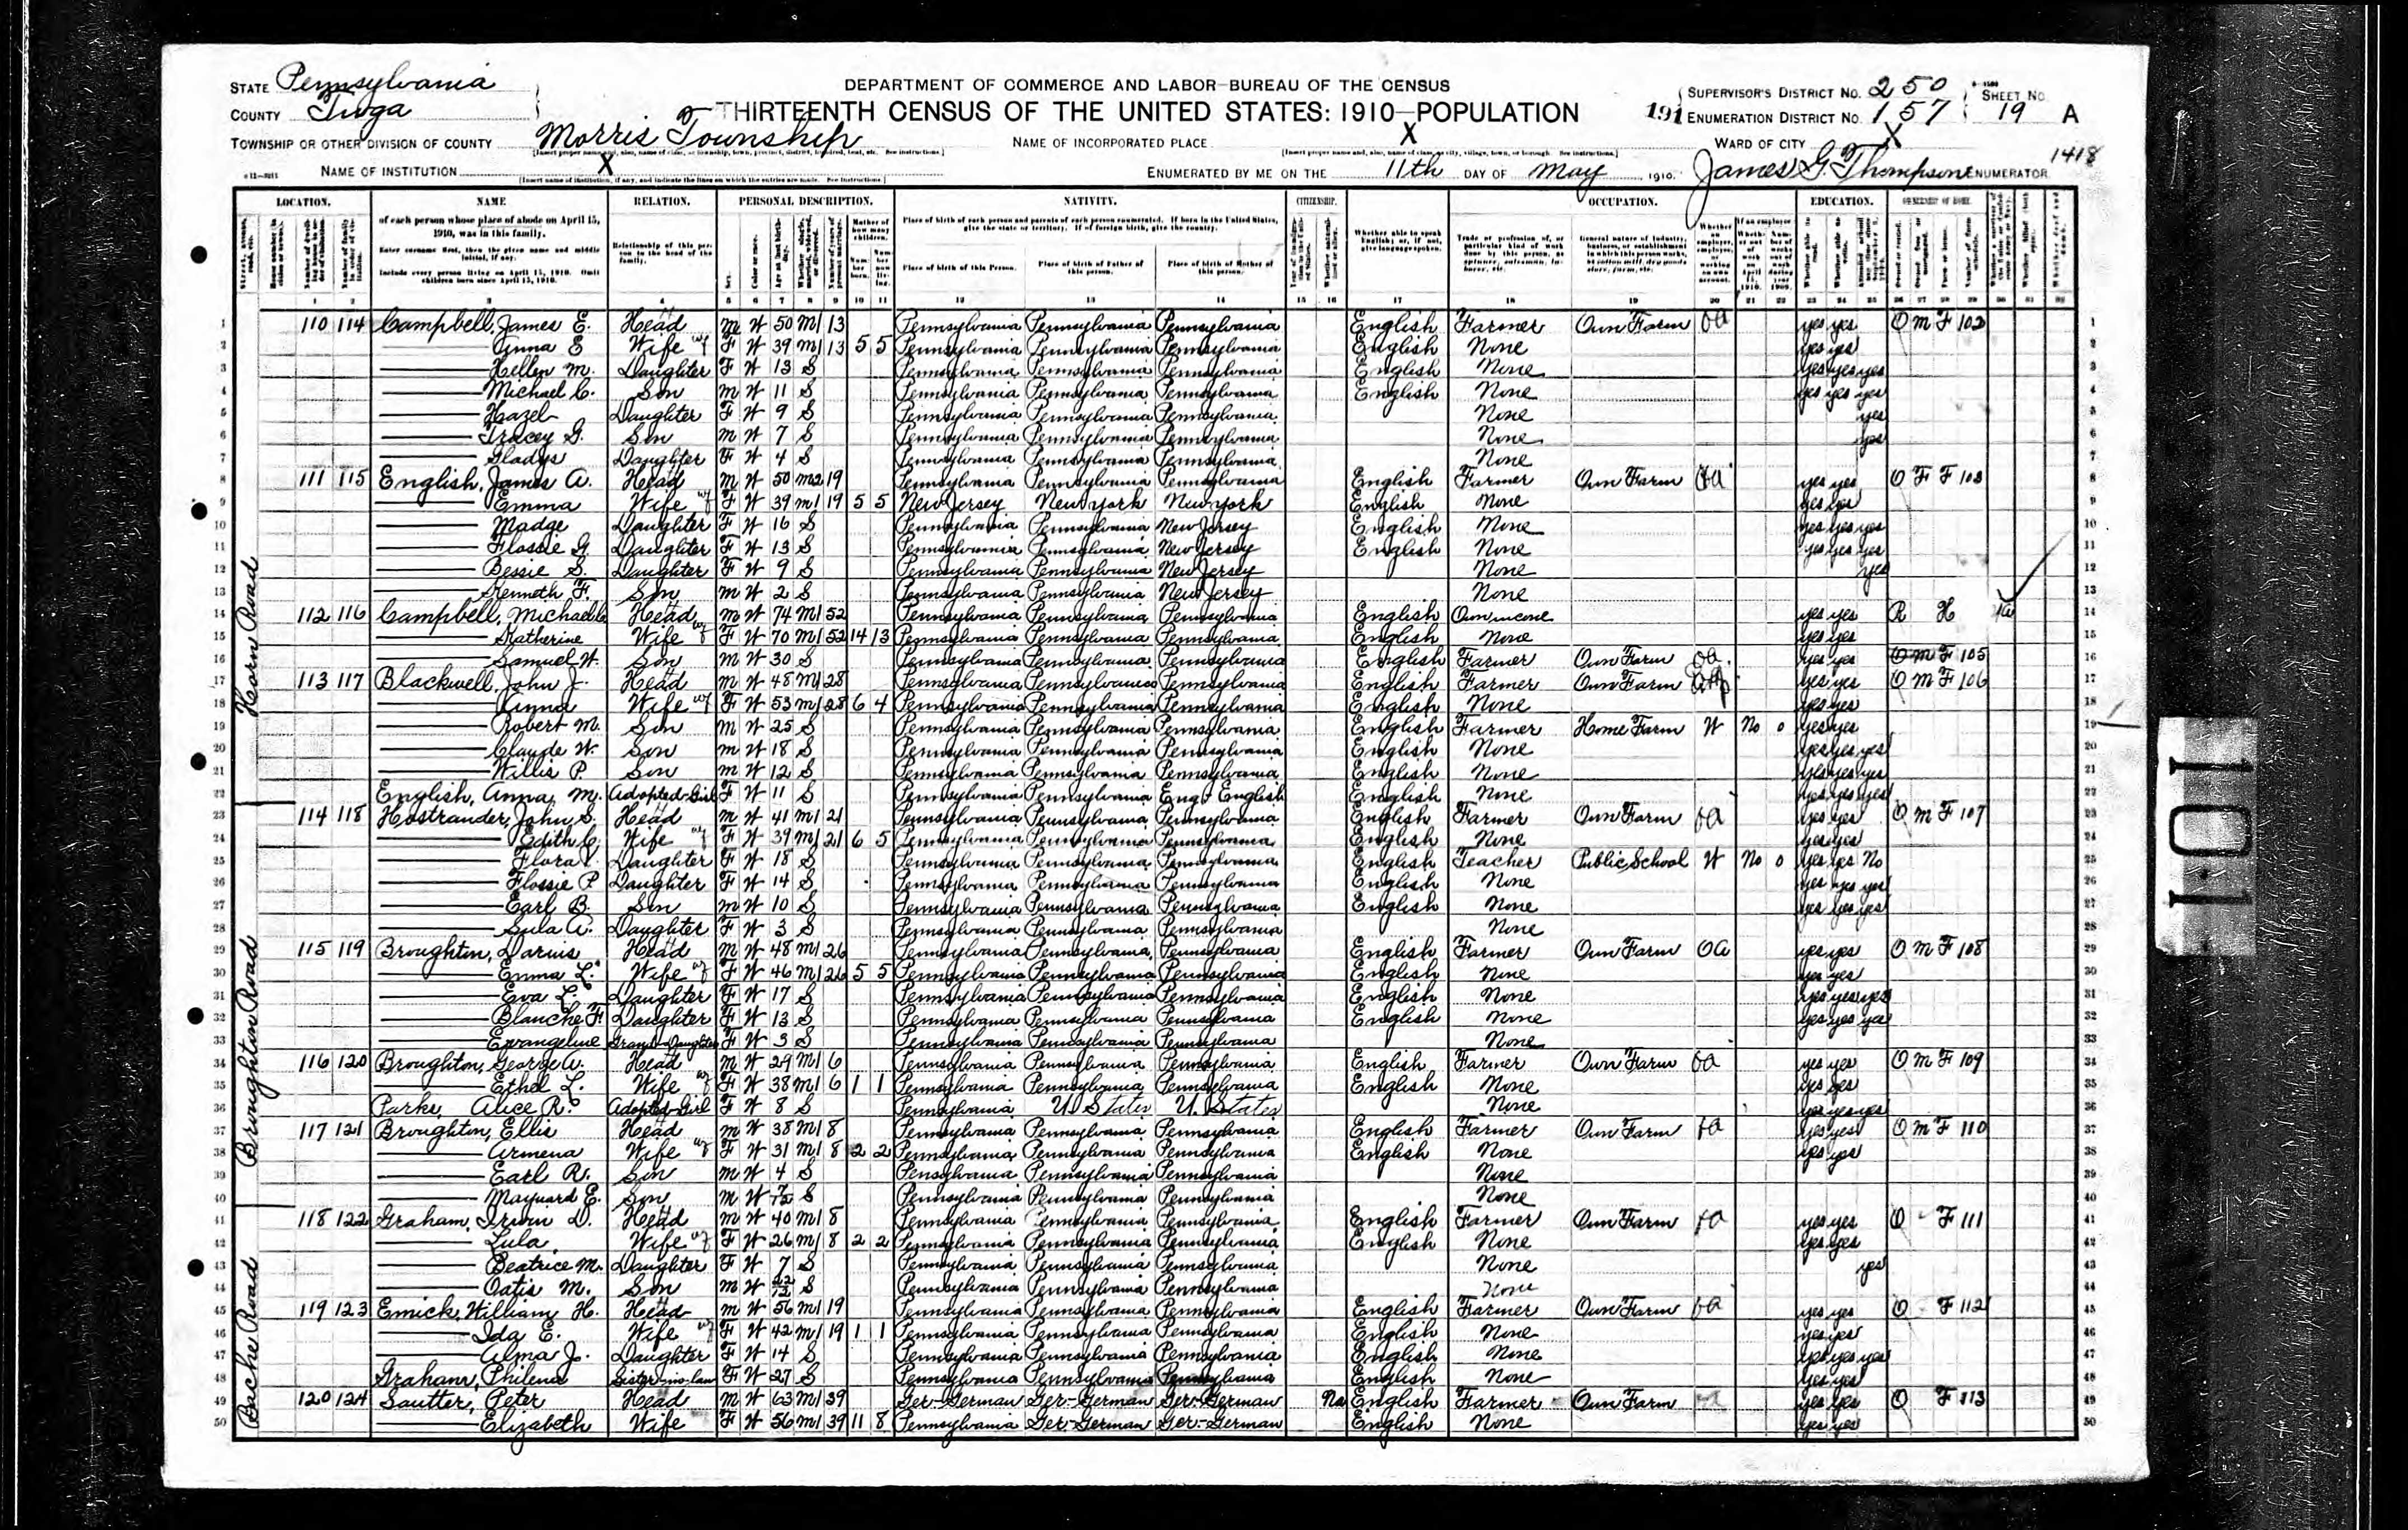 STATE Pennsylvania
COUNTY Tioga
DEPARTMENT OF COMMERCE AND LABOR—BUREAU OF THE CENSUS
THIRTEENTH CENSUS OF THE UNITED STATES: 1910—POPULATION
SUPERVISOR'S DISTRICT NO. 250
ENUMERATION DISTRICT NO. 157
SHEET NO. 19 A
191
TOWNSHIP OR OTHER DIVISION OF COUNTY Morris Township
NAME OF INCORPORATED PLACE X
WARD OF CITY X
1418
NAME OF INSTITUTION X
ENUMERATED BY ME ON THE 11th DAY OF May, 1910. James G. Thompson ENUMERATOR
LOCATION. NAME RELATION. PERSONAL DESCRIPTION. NATIVITY. CITIZENSHIP. OCCUPATION. EDUCATION. OWNERSHIP OF HOME.
of each person whose place of abode on April 15, 1910, was in this family.
Enter surname first, then the given name and middle initial, if any.
Include every person living on April 15, 1910. Omit children born since April 15, 1910.
Relationship of this person to the head of the family.
Place of birth of each person and parents of each person enumerated. If born in the United States, give the state or territory. If of foreign birth, give the country.
Place of birth of this Person. Place of birth of Father of this person. Place of birth of Mother of this person.
Whether able to speak English; or, if not, give language spoken.
1 2 3 4 5 6 7 8 9 10 11 12 13 14 15 16 17 18 19 20 21 22 23 24 25 26 27 28 29 30 31 32
Horn Road
1 110 114 Campbell, James E. Head M W 50 M1 13 Pennsylvania Pennsylvania Pennsylvania English Farmer Own Farm OA yes yes O M F 102 1
2 Anna E Wife F W 39 M1 13 5 5 Pennsylvania Pennsylvania Pennsylvania English None yes yes 2
3 Hellen M. Daughter F W 13 S Pennsylvania Pennsylvania Pennsylvania English None yes yes yes 3
4 Michael C. Son M W 11 S Pennsylvania Pennsylvania Pennsylvania English None yes yes yes 4
5 Hazel Daughter F W 9 S Pennsylvania Pennsylvania Pennsylvania None yes 5
6 Tracey G. Son M W 7 S Pennsylvania Pennsylvania Pennsylvania None yes 6
7 Gladys Daughter F W 4 S Pennsylvania Pennsylvania Pennsylvania None 7
8 111 115 English, James A. Head M W 50 M2 19 Pennsylvania Pennsylvania Pennsylvania English Farmer Own Farm OA yes yes O F F 103 8
9 Emma Wife F W 39 M1 19 5 5 New Jersey New York New York English None yes yes 9
10 Madge Daughter F W 16 S Pennsylvania Pennsylvania New Jersey English None yes yes yes 10
11 Flossie G. Daughter F W 13 S Pennsylvania Pennsylvania New Jersey English None yes yes yes 11
12 Bessie S. Daughter F W 9 S Pennsylvania Pennsylvania New Jersey None yes 12
13 Kenneth F. Son M W 2 S Pennsylvania Pennsylvania New Jersey None 13
14 112 116 Campbell, Michael C Head M W 74 M1 52 Pennsylvania Pennsylvania Pennsylvania English Own income yes yes R H 14
15 Katherine Wife F W 70 M1 52 14 13 Pennsylvania Pennsylvania Pennsylvania English None yes yes 15
16 Samuel W. Son M W 30 S Pennsylvania Pennsylvania Pennsylvania English Farmer Own Farm OA yes yes O M F 105 16
17 113 117 Blackwell, John J. Head M W 48 M1 28 Pennsylvania Pennsylvania Pennsylvania English Farmer Own Farm yes yes O M F 106 17
18 Anna Wife F W 53 M1 28 6 4 Pennsylvania Pennsylvania Pennsylvania English None yes yes 18
19 Robert M. Son M W 25 S Pennsylvania Pennsylvania Pennsylvania English Farmer Home Farm W No 0 yes yes 19
20 Claude W. Son M W 18 S Pennsylvania Pennsylvania Pennsylvania English None yes yes yes 20
21 Willis P. Son M W 12 S Pennsylvania Pennsylvania Pennsylvania English None yes yes yes 21
22 English, Anna M. Adopted-Girl F W 11 S Pennsylvania Pennsylvania Eng-English English None yes yes yes 22
23 114 118 Hostrander, John S. Head M W 41 M1 21 Pennsylvania Pennsylvania Pennsylvania English Farmer Own Farm OA yes yes O M F 107 23
24 Edith C. Wife F W 39 M1 21 6 5 Pennsylvania Pennsylvania Pennsylvania English None yes yes 24
25 Flora Daughter F W 18 S Pennsylvania Pennsylvania Pennsylvania English Teacher Public School W No 0 yes yes No 25
26 Flossie P. Daughter F W 14 S Pennsylvania Pennsylvania Pennsylvania English None yes yes yes 26
27 Earl B. Son M W 10 S Pennsylvania Pennsylvania Pennsylvania English None yes yes yes 27
28 Lula A. Daughter F W 3 S Pennsylvania Pennsylvania Pennsylvania None 28
Broughton Road
29 115 119 Broughton, Darius Head M W 48 M1 26 Pennsylvania Pennsylvania Pennsylvania English Farmer Own Farm OA yes yes O M F 108 29
30 Emma L. Wife F W 46 M1 26 5 5 Pennsylvania Pennsylvania Pennsylvania English None yes yes 30
31 Eva L. Daughter F W 17 S Pennsylvania Pennsylvania Pennsylvania English None yes yes yes 31
32 Blanche F. Daughter F W 13 S Pennsylvania Pennsylvania Pennsylvania English None yes yes yes 32
33 Evangeline Grand-Daughter F W 3 S Pennsylvania Pennsylvania Pennsylvania None 33
34 116 120 Broughton, George W. Head M W 29 M1 6 Pennsylvania Pennsylvania Pennsylvania English Farmer Own Farm OA yes yes O M F 109 34
35 Ethel L. Wife F W 38 M1 6 1 1 Pennsylvania Pennsylvania Pennsylvania English None yes yes 35
36 Parks, Alice R. Adopted-Girl F W 8 S Pennsylvania U. States U. States None yes yes yes 36
37 117 121 Broughton, Ellis Head M W 38 M1 8 Pennsylvania Pennsylvania Pennsylvania English Farmer Own Farm OA yes yes O M F 110 37
38 Armena Wife F W 31 M1 8 2 2 Pennsylvania Pennsylvania Pennsylvania English None yes yes 38
39 Earl R. Son M W 4 S Pensylvania Pennsylvania Pennsylvania None 39
40 Maynard E. Son M W S Pennsylvania Pennsylvania Pennsylvania None 40
Bache Road
41 118 122 Graham, Irwin D. Head M W 40 M1 8 Pennsylvania Pennsylvania Pennsylvania English Farmer Own Farm OA yes yes O F 111 41
42 Lula Wife F W 26 M1 8 2 2 Pennsylvania Pennsylvania Pennsylvania English None yes yes 42
43 Beatrice M. Daughter F W 7 S Pennsylvania Pennsylvania Pennsylvania None yes 43
44 Oatis M. Son M W S Pennsylvania Pennsylvania Pennsylvania None 44
45 119 123 Emick, William H. Head M W 56 M1 19 Pennsylvania Pennsylvania Pennsylvania English Farmer Own Farm OA yes yes O F 112 45
46 Ida E. Wife F W 42 M1 19 1 1 Pennsylvania Pennsylvania Pennsylvania English None yes yes 46
47 Alma J. Daughter F W 14 S Pennsylvania Pennsylvania Pennsylvania English None yes yes yes 47
48 Graham, Philena Sister-in-law F W 27 S Pennsylvania Pennsylvania Pennsylvania English None yes yes 48
49 120 124 Sautter, Peter Head M W 63 M1 39 Ger-German Ger-German Ger-German Na English Farmer Own Farm yes yes O F 113 49
50 Elizabeth Wife F W 56 M1 39 11 8 Pennsylvania Ger-German Ger-German English None yes yes 50
1.0.1